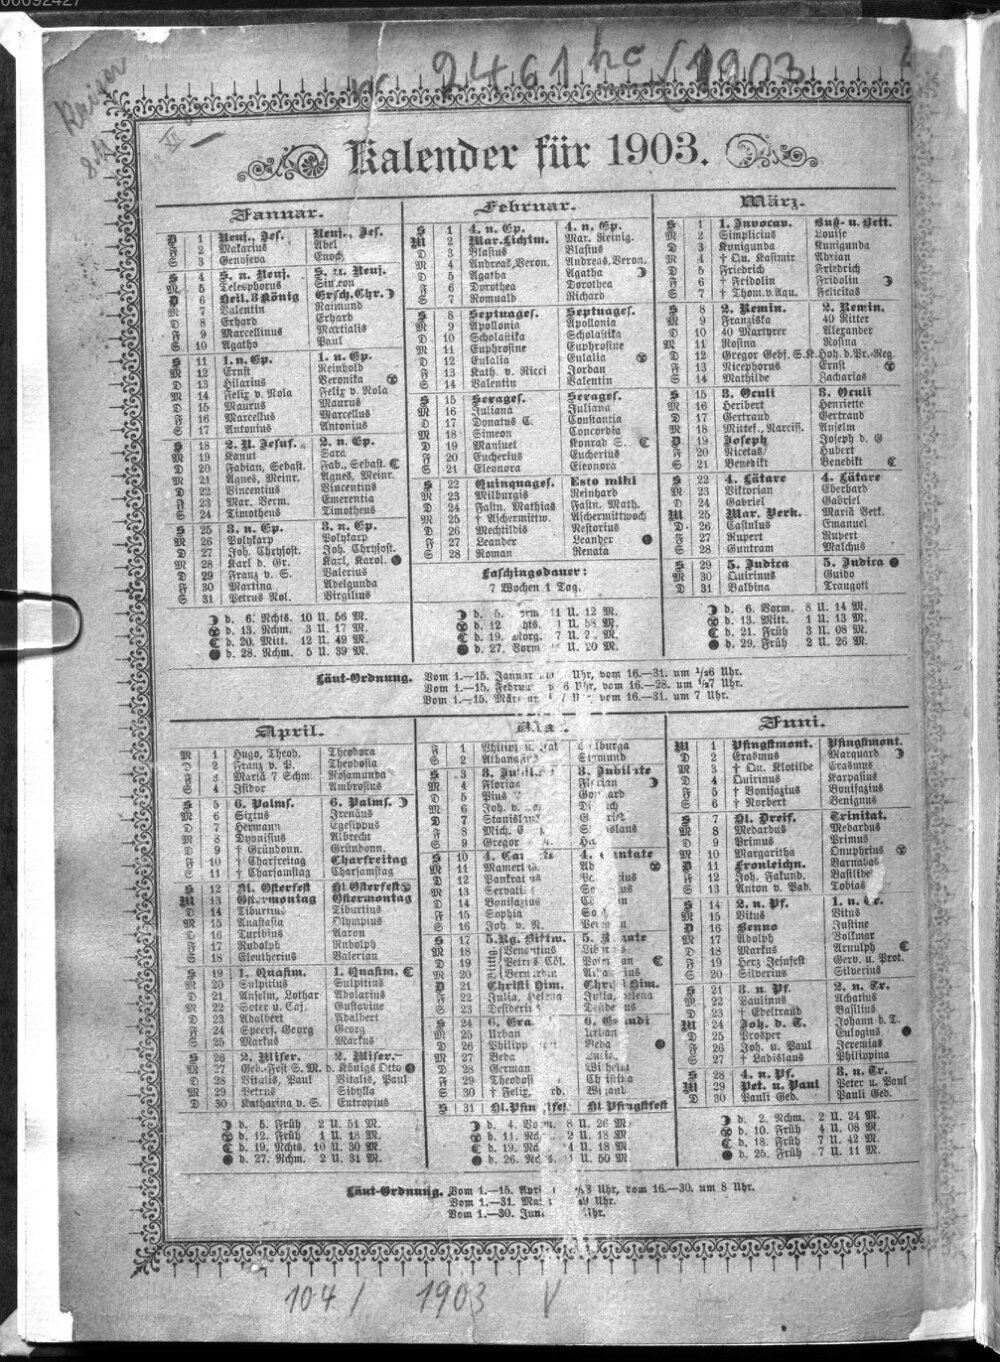 00092427
2461 hc (1903
Kalender für 1903.
Januar.
D 1 Neuj., Jes. Neuj., Jes.
F 2 Makarius Abel
S 3 Genofeva Enoch
S 4 S. n. Neuj. S. n. Neuj.
M 5 Telesphorus Simeon
D 6 Heil. 3 König Ersch. Chr.
M 7 Valentin Raimund
D 8 Erhard Erhard
F 9 Marcellinus Martialis
S 10 Agatho Paul
S 11 1. n. Ep. 1. n. Ep.
M 12 Ernst Reinhold
D 13 Hilarius Veronika
M 14 Felix v. Nola Felix v. Nola
D 15 Maurus Maurus
F 16 Marcellus Marcellus
S 17 Antonius Antonius
S 18 2. N. Jesus. 2. n. Ep.
M 19 Kanut Sara
D 20 Fabian, Sebast. Fab., Sebast.
M 21 Agnes, Meinr. Agnes, Meinr.
D 22 Vincentius Vincentius
F 23 Mar. Verm. Emerentia
S 24 Timotheus Timotheus
S 25 3. n. Ep. 3. n. Ep.
M 26 Polykarp Polykarp
D 27 Joh. Chrysost. Joh. Chrysost.
M 28 Karl d. Gr. Karl, Karol.
D 29 Franz v. S. Valerius
F 30 Martina Adelgunda
S 31 Petrus Nol. Virgilius
d. 6. Nchts. 10 U. 56 M.
d. 13. Nchm. 3 U. 17 M.
d. 20. Mitt. 12 U. 49 M.
d. 28. Nchm. 5 U. 39 M.
Februar.
S 1 4. n. Ep. 4. n. Ep.
M 2 Mar. Lichtm. Mar. Reinig.
D 3 Blasius Blasius
M 4 Andreas, Veron. Andreas, Veron.
D 5 Agatha Agatha
F 6 Dorothea Dorothea
S 7 Romuald Richard
S 8 Septuages. Septuages.
M 9 Apollonia Apollonia
D 10 Scholastika Scholastika
M 11 Euphrosine Euphrosine
D 12 Eulalia Eulalia
F 13 Kath. v. Ricci Jordan
S 14 Valentin Valentin
S 15 Serages. Serages.
M 16 Juliana Juliana
D 17 Donatus C. Constantia
M 18 Simeon Concordia
D 19 Mansuet Konrad S.
F 20 Eucherius Eucherius
S 21 Eleonora Eleonora
S 22 Quinquages. Esto mihi
M 23 Milburgis Reinhard
D 24 Fastn. Mathias Fastn. Math.
M 25 † Aschermittw. Aschermittwoch
D 26 Mechtildis Nestorius
F 27 Leander Leander
S 28 Roman Renata
Faschingsdauer:
7 Wochen 1 Tag.
d. 5. 11 U. 12 M.
d. 12. 1 U. 58 M.
d. 19. 7 U. M.
d. 27. Vorm. U. 20 M.
März.
S 1 1. Invocav. Buß- u. Bett.
M 2 Simplicius Louise
D 3 Kunigunda Kunigunda
M 4 † Qu. Kasimir Adrian
D 5 Friedrich Friedrich
F 6 † Fridolin Fridolin
S 7 † Thom. v. Aqu. Felicitas
S 8 2. Remin. 2. Remin.
M 9 Franziska 40 Ritter
D 10 40 Martyrer Alexander
M 11 Rosina Rosina
D 12 Gregor Gebf. S.K. Hoh. d. Pr.-Reg.
F 13 Nicephorus Ernst
S 14 Mathilde Zacharias
S 15 3. Oculi 3. Oculi
M 16 Heribert Henriette
D 17 Gertraud Gertraud
M 18 Mittef., Narciss. Anselm
D 19 Joseph Joseph d. G
F 20 Nicetas Hubert
S 21 Benedikt Benedikt
S 22 4. Lätare 4. Lätare
M 23 Viktorian Eberhard
D 24 Gabriel Gabriel
M 25 Mar. Verk. Mariä Verk.
D 26 Castulus Emanuel
F 27 Rupert Rupert
S 28 Guntram Malchus
S 29 5. Judica 5. Judica
M 30 Quirinus Guido
D 31 Balbina Traugott
d. 6. Vorm. 8 U. 14 M.
d. 13. Mitt. 1 U. 13 M.
d. 21. Früh 3 U. 08 M.
d. 29. Früh 2 U. 26 M.
Läut-Ordnung. Vom 1.—15. Januar Uhr, vom 16.—31. um ½6 Uhr.
Vom 1.—15. Februar 6 Uhr, vom 16.—28. um ½7 Uhr.
Vom 1.—15. März vom 16.—31. um 7 Uhr.
April.
M 1 Hugo, Theod. Theodora
D 2 Franz v. P. Theodosia
F 3 Mariä 7 Schm. Rosamunda
S 4 Isidor Ambrosius
S 5 6. Palms. 6. Palms.
M 6 Sixtus Irenäus
D 7 Hermann Egesippus
M 8 Dyonisius Albrecht
D 9 † Gründonn. Gründonn.
F 10 † Charfreitag Charfreitag
S 11 † Charsamstag Charsamstag
S 12 Hl. Osterfest Hl. Osterfest
M 13 Ostermontag Ostermontag
D 14 Tiburtius Tiburtius
M 15 Anastasia Olympius
D 16 Turibius Aaron
F 17 Rudolph Rudolph
S 18 Eleutherius Valerian
S 19 1. Quasim. 1. Quasim.
M 20 Sulpitius Sulpitius
D 21 Anselm, Lothar Adolarius
M 22 Soter u. Caj. Gustavine
D 23 Adalbert Adalbert
F 24 Speerf. Georg Georg
S 25 Markus Markus
S 26 2. Miser. 2. Miser.
M 27 Geb.-Fest S. M. d. Königs Otto
D 28 Vitalis, Paul Vitalis, Paul
M 29 Petrus Sibylla
D 30 Katharina v. S. Eutropius
d. 5. Früh 2 U. 51 M.
d. 12. Früh 1 U. 18 M.
d. 19. Nchts. 10 U. 30 M.
d. 27. Nchm. 2 U. 31 M.
F 1
S 2 Sigmund
S 3
M 4 Florian
D 5 Pius
M 6 Joh. v.
D 7
F 8 Mich.
S 9 Gregor
S 10
M 11
D 12
M 13
D 14 Bonifazius
F 15 Sophia
S 16 Joh. v. N.
S 17 5. Rg. Bittw.
M 18 Bittg. Venantius
D 19 Petrus Cöl.
M 20
D 21 Christi Him.
F 22 Julia, Helena Julia,
S 23
S 24
M 25 Urban Urban
D 26 Beda
M 27 Beda
D 28 German
F 29
S 30 † Felix,
S 31 Hl. Pfingstfest
d. 4. 8 U. 26 M.
d. 11. 2 U. 18 M.
d. 19. 4 U. 18 M.
d. 26. U. 50 M.
Juni.
M 1 Pfingstmont. Pfingstmont.
D 2 Erasmus Marquard
M 3 † Qu. Klotilde Erasmus
D 4 Quirinus Karpasius
F 5 † Bonifazius Bonifazius
S 6 † Norbert Benignus
S 7 Hl. Dreif. Trinitat.
M 8 Medardus Medardus
D 9 Primus Primus
M 10 Margaritha Onuphrius
D 11 Fronleichn. Barnabas
F 12 Joh. Fakund. Basilides
S 13 Anton v. Pad. Tobias
S 14 2. n. Pf. 1. n. Tr.
M 15 Vitus Vitus
D 16 Benno Justine
M 17 Adolph Volkmar
D 18 Markus Arnulph
F 19 Herz Jesufest Gerv. u. Prot.
S 20 Silverius Silverius
S 21 3. n. Pf. 2. n. Tr.
M 22 Paulinus Achatius
D 23 † Edeltraud Basilius
M 24 Joh. d. T. Johann d. T.
D 25 Prosper Eulogius
F 26 Joh. u. Paul Jeremias
S 27 † Ladislaus Philippina
S 28 4. n. Pf. 3. n. Tr.
M 29 Pet. u. Paul Peter u. Paul
D 30 Pauli Ged. Pauli Ged.
d. 2. Nchm. 2 U. 24 M.
d. 10. Früh 4 U. 08 M.
d. 18. Früh 7 U. 42 M.
d. 25. Früh 7 U. 11 M.
Läut-Ordnung. Vom 1.—15. April Uhr, vom 16.—30. um 8 Uhr.
Vom 1.—31. Mai Uhr.
Vom 1.—30. Juni Uhr.
104 / 1903 V